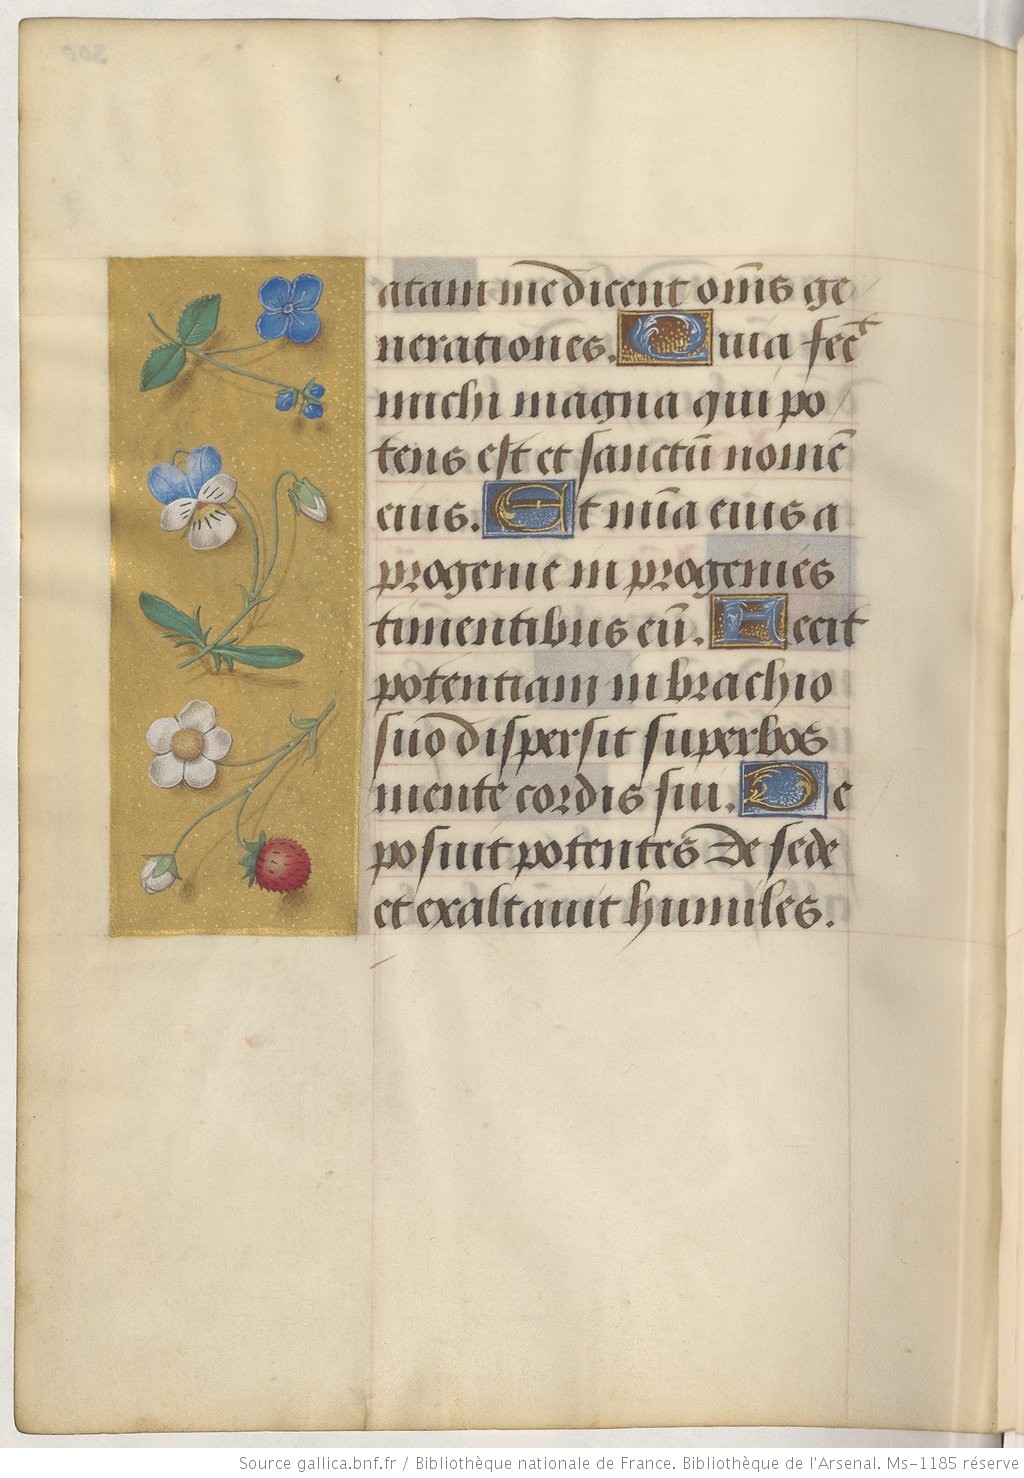 atam me dicent om̄s ge
nerationes. Quia fec̄t
michi magna qui po
tens est et sanctū nomē
eius. Et mīa eius a
progenie in progenies
timentibus eū. Fecit
potentiam in brachio
suo dispersit superbos
mente cordis sui. De
posuit potentes de sede
et exaltauit humiles.
Source gallica.bnf.fr / Bibliothèque nationale de France. Bibliothèque de l'Arsenal. Ms-1185 réserve